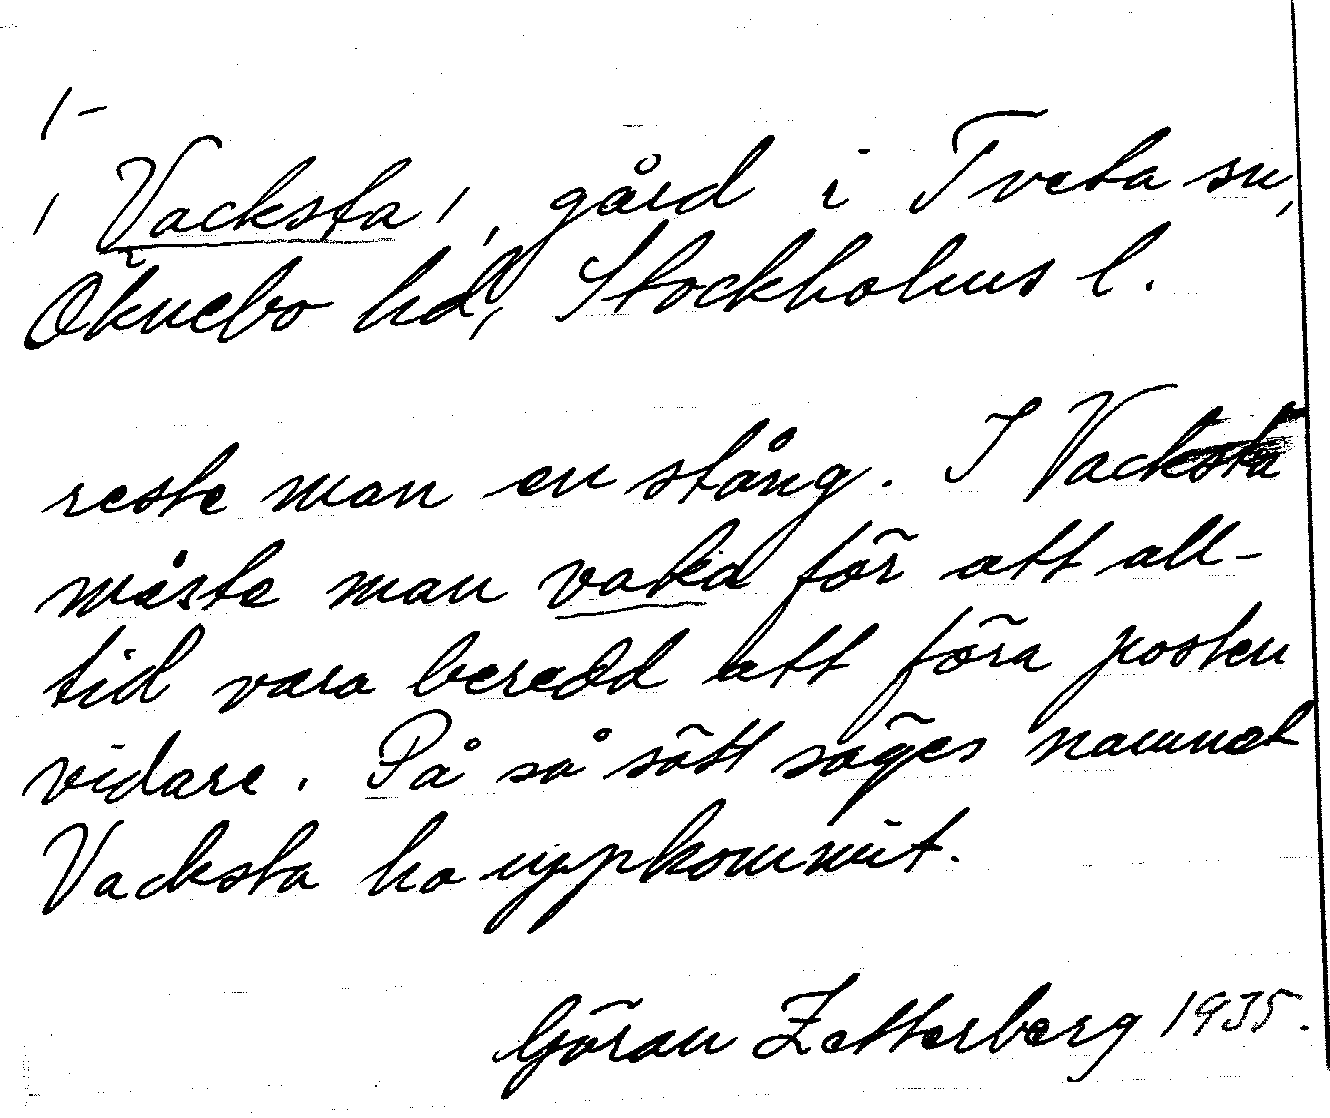 /-
/ Vacksta /, gård i Tveta sn,
Öknebo hd, Stockholms l.
reste man en stång. I Vacksta
måste man vaka för att all-
tid vara beredd att föra posten
vidare. På så sätt säges namnet
Vacksta ha uppkommit.
Göran Zetterberg 1935.